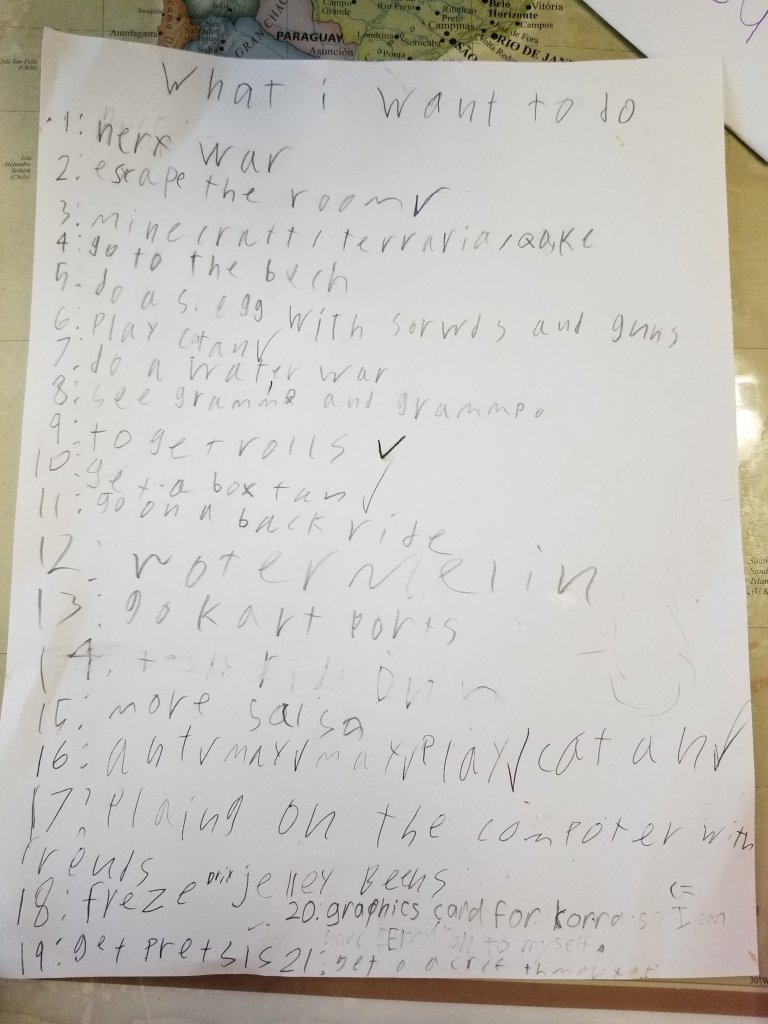 Antofagasta
GRAN CHACO
PARAGUAY
Asunción
Campo Grande
Rio Preto
Ribeirão Preto
Londrina
Sorocaba
Ponta
Campinas
Belo Horizonte
Vitória
Campos
de Fora
RIO DE JAN
Isla San Felix (Chile)
Isla Alejandro Selkirk (Chile)
What i want to do
1: nerf war
2: escape the room✓
3: minecraft/terraria/Qake
4: go to the bech
5: do a siegg with sorwds and guns
6: Play catan✓
7. do a water war
8: see gramma and grammpo
9: to get rolls ✓
10: get a box tan✓
11: go on a back ride
12: woter melin
13: go kart ports
14.
15: more salsa
16: ant✓max✓max✓Play✓catan✓
17: Plaing on the compoter with
frends
18: freze Drix jelley Beens
20: graphics card for Korra so I can (=
to myself.
19: get pretsls
21: get a
30° W